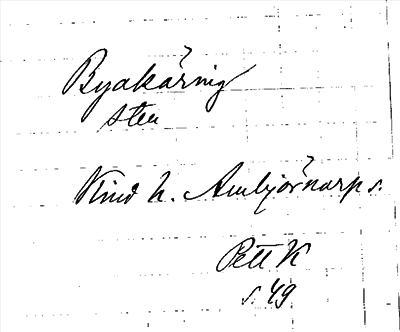 Byakärnig
sten
Kind h. Ambjörnarp s.
Pett K
s. 49.